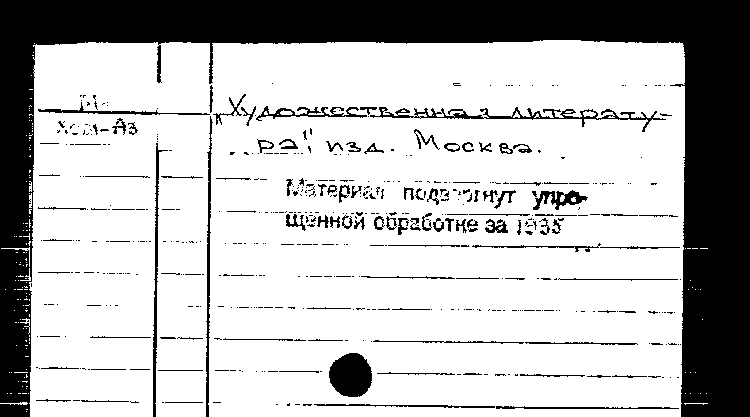 „Художественная литерату-
ра" изд. Москва.
Материал подвергнут упро-
щенной обработке за 1985